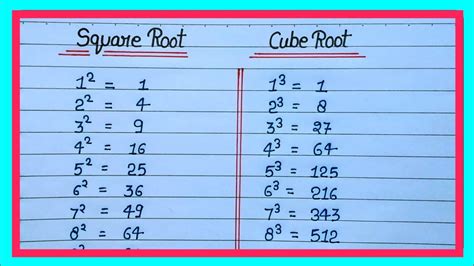 Square Root
1² = 1
2² = 4
3² = 9
4² = 16
5² = 25
6² = 36
7² = 49
8² = 64
Cube Root
1³ = 1
2³ = 8
3³ = 27
4³ = 64
5³ = 125
6³ = 216
7³ = 343
8³ = 512